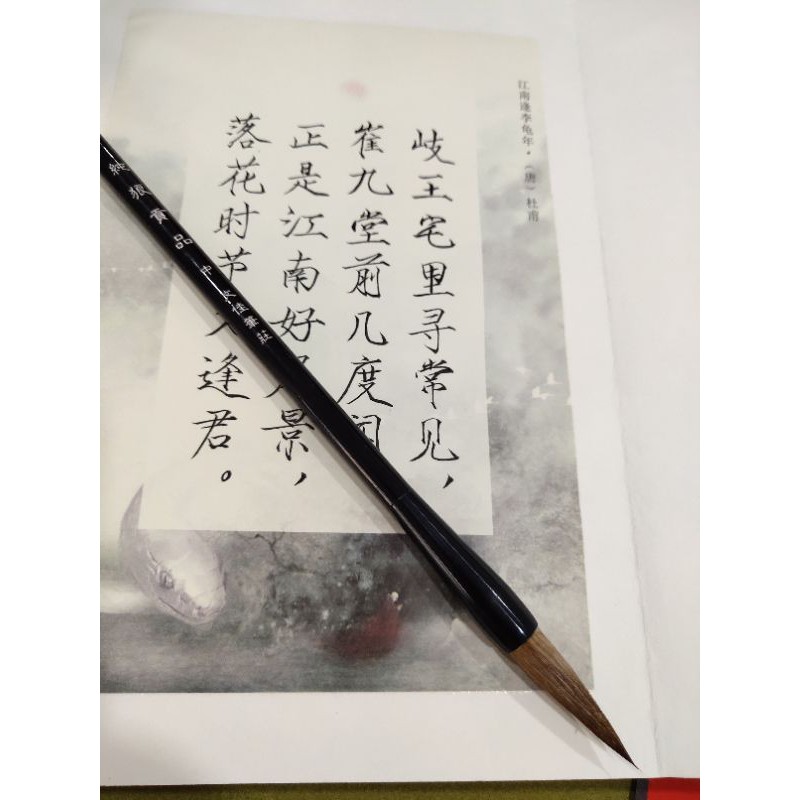 江南逢李龟年·（唐）杜甫
岐王宅里寻常见，
崔九堂前几度闻
正是江南好景，
落花时节逢君。
純狼貢品 中 佳筆莊